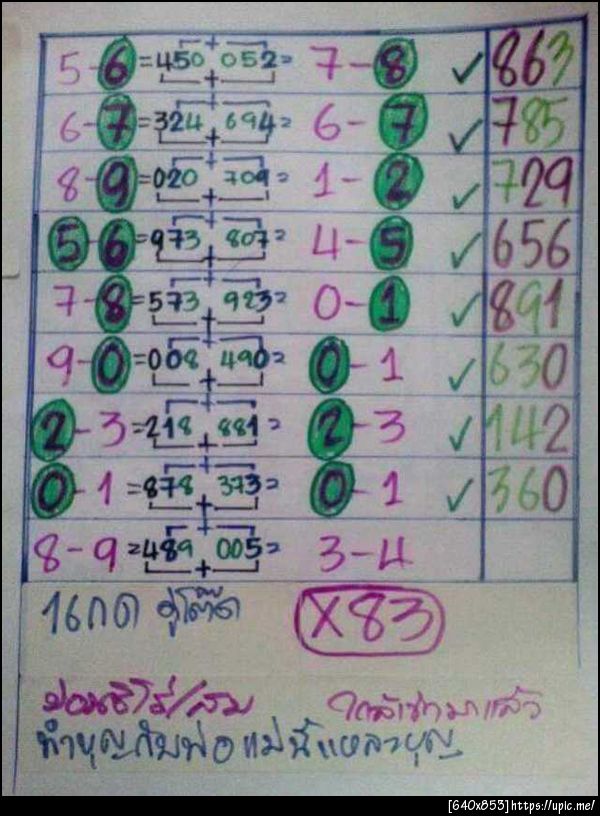 5-6=450 052= 7-8 ✓ 863
6-7=324 694= 6-7 ✓ 785
8-9=020 709= 1-2 ✓ 729
5-6=973 807= 4-5 ✓ 656
7-8=573 923= 0-1 ✓ 891
9-0=008 490= 0-1 ✓ 630
2-3=218 881= 2-3 ✓ 142
0-1=878 373= 0-1 ✓ 360
8-9=489 005= 3-4
X83
ทำบุญกับพ่อแม่
[640x853]https://upic.me/